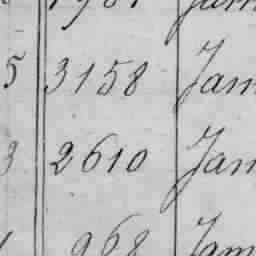 5 3158 Jam
3 2610 Jam
968 Jam